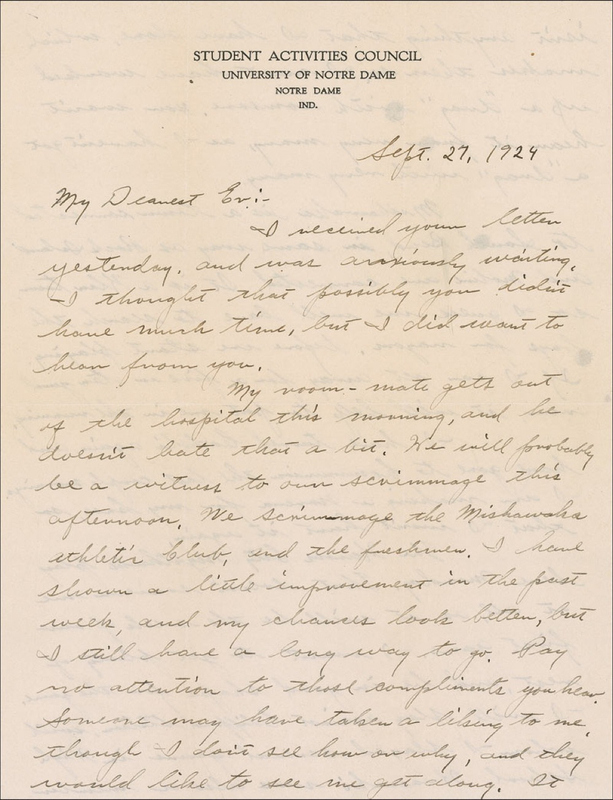 STUDENT ACTIVITIES COUNCIL
UNIVERSITY OF NOTRE DAME
NOTRE DAME
IND.
Sept. 27, 1924
My Dearest Ev:-
I received your letter
yesterday, and was anxiously waiting.
I thought that possibly you didn't
have much time, but I did want to
hear from you.
My room-mate gets out
of the hospital this morning, and he
doesn't hate that a bit. He will probably
be a witness to our scrimmage this
afternoon. We scrimmage the Mishawaka
Athletic Club, and the freshmen. I have
shown a little improvement in the past
week, and my chances look better, but
I still have a long way to go. Pay
no attention to those compliments you hear.
Someone may have taken a liking to me,
though I don't see how or why, and they
would like to see me get along. It